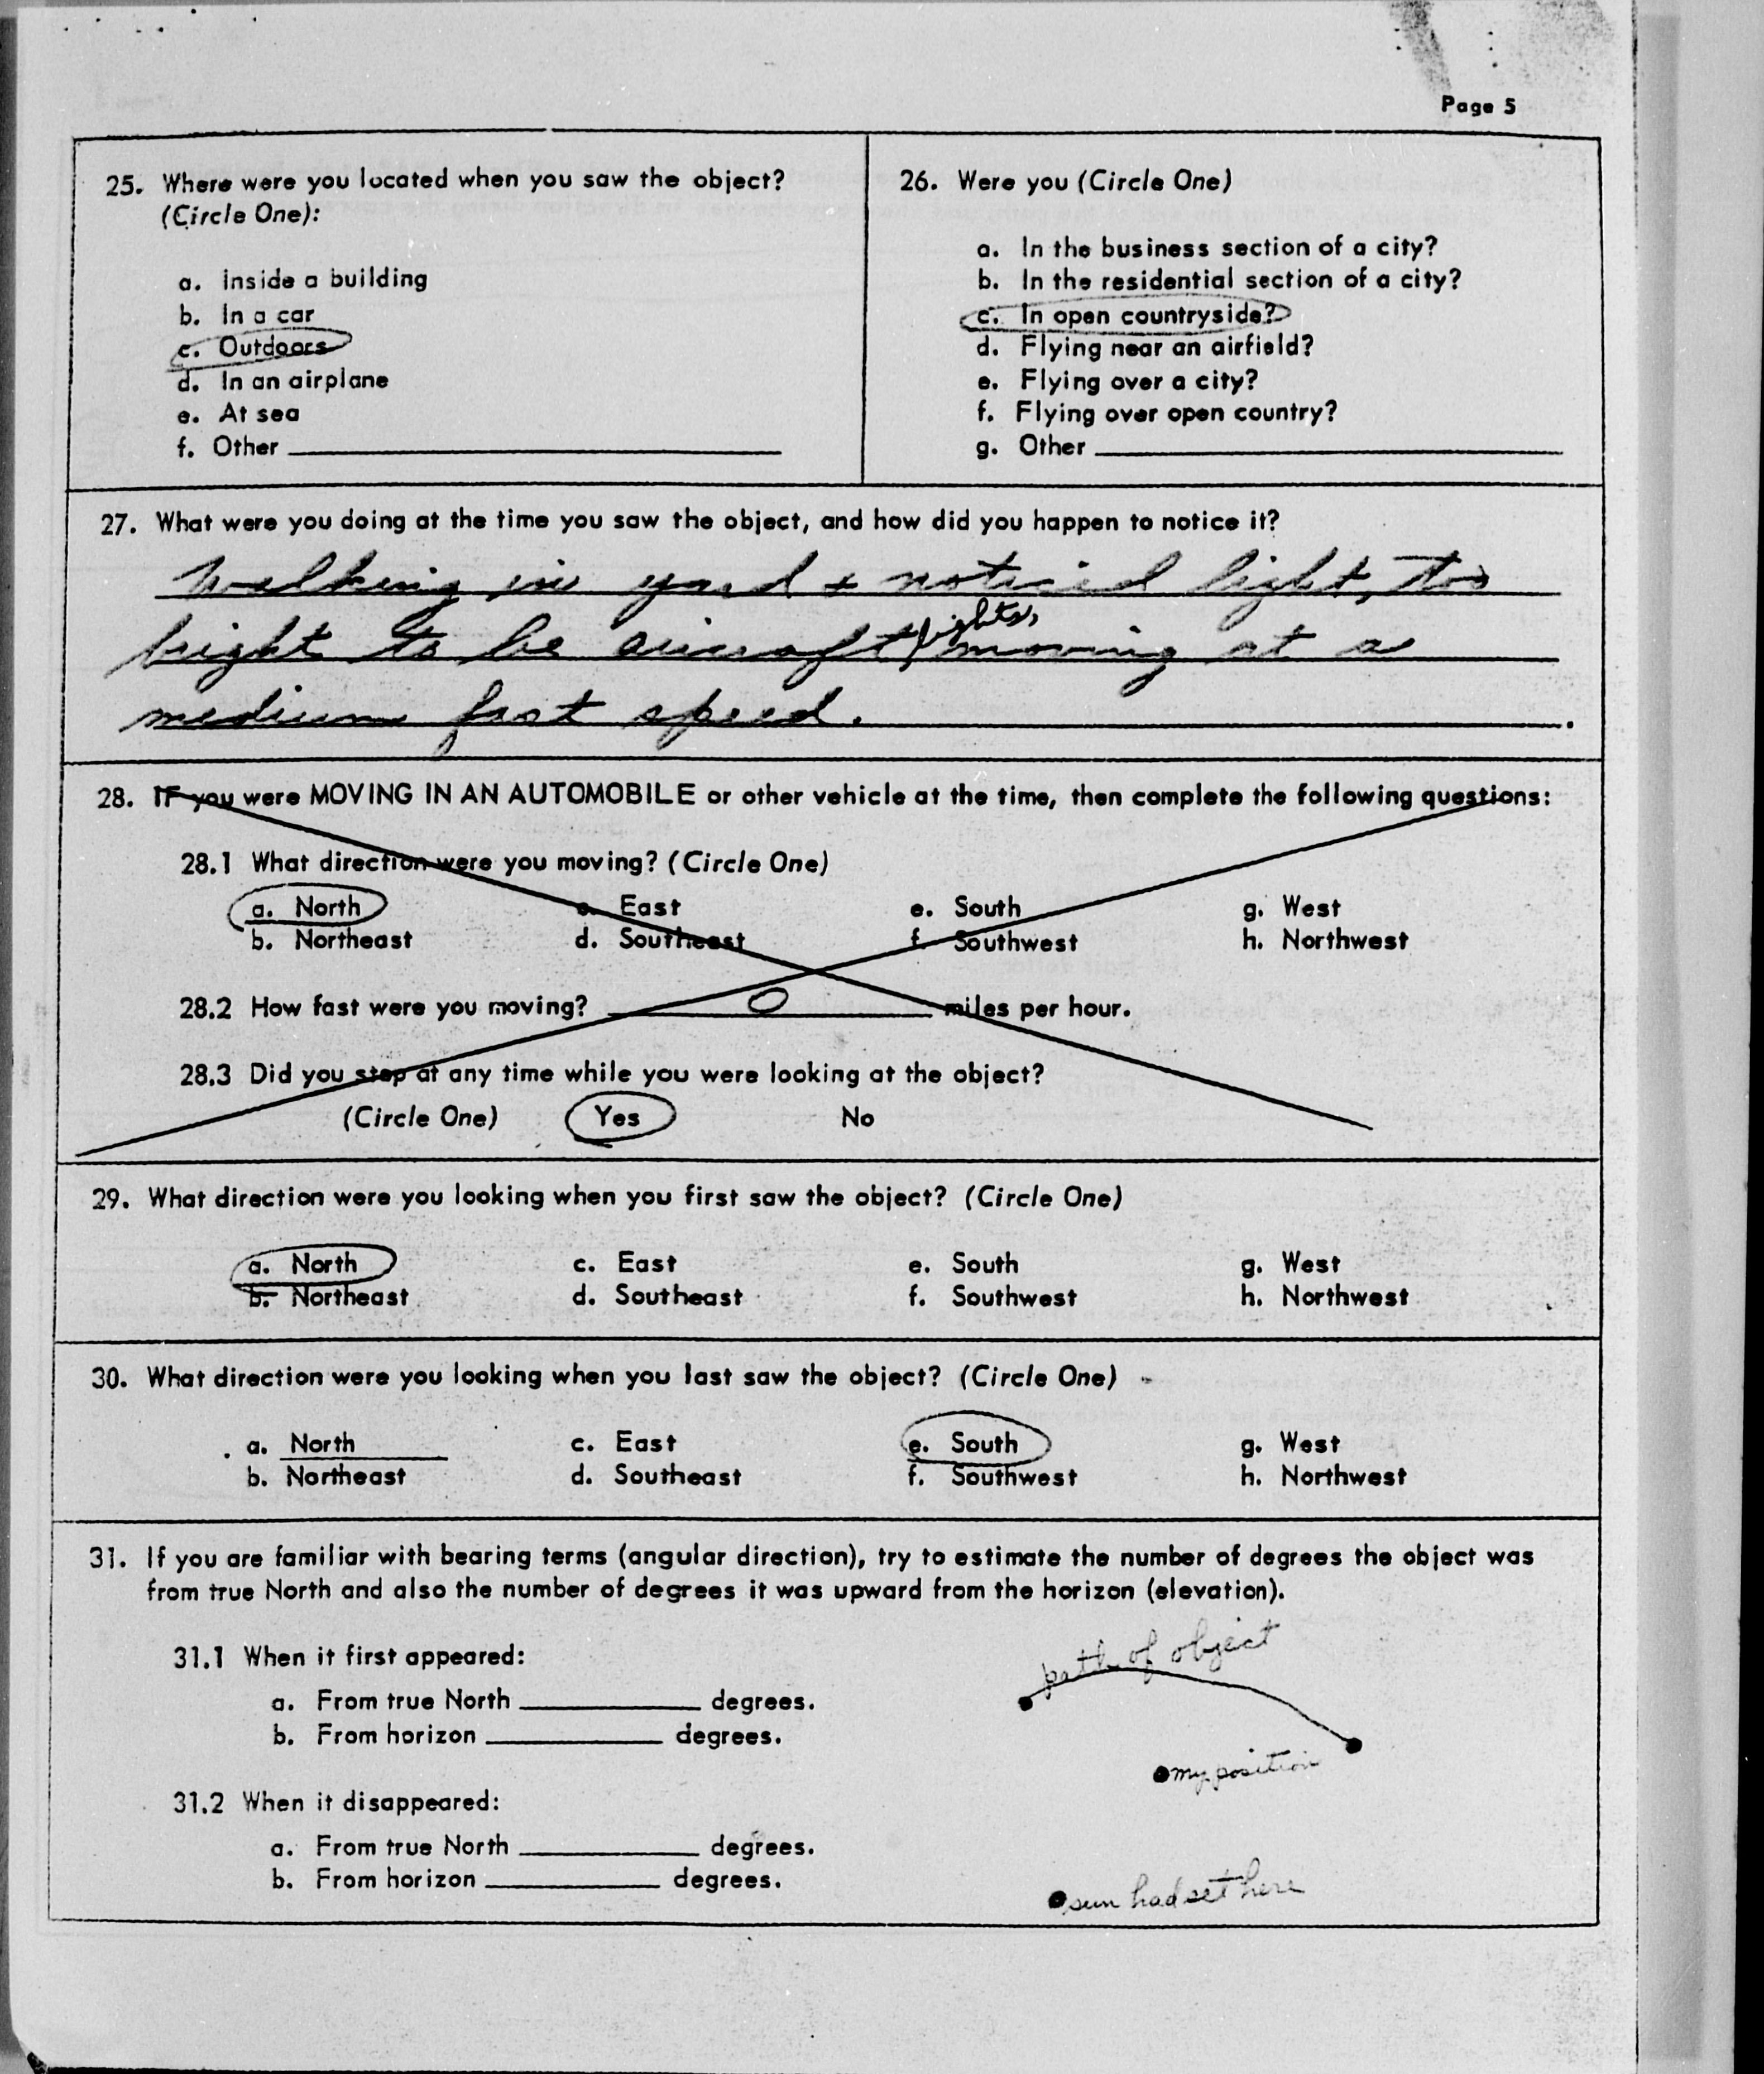 Page 5
25. Where were you located when you saw the object?
(Circle One):
a. Inside a building
b. In a car
c. Outdoors
d. In an airplane
e. At sea
f. Other
26. Were you (Circle One)
a. In the business section of a city?
b. In the residential section of a city?
c. In open countryside?
d. Flying near an airfield?
e. Flying over a city?
f. Flying over open country?
g. Other
27. What were you doing at the time you saw the object, and how did you happen to notice it?
Walking in yard + noticed light, too
bright to be aircraft lights, moving at a
medium fast speed.
28. IF you were MOVING IN AN AUTOMOBILE or other vehicle at the time, then complete the following questions:
28.1 What direction were you moving? (Circle One)
a. North c. East e. South g. West
b. Northeast d. Southeast f. Southwest h. Northwest
28.2 How fast were you moving? 0 miles per hour.
28.3 Did you stop at any time while you were looking at the object?
(Circle One) Yes No
29. What direction were you looking when you first saw the object? (Circle One)
a. North c. East e. South g. West
b. Northeast d. Southeast f. Southwest h. Northwest
30. What direction were you looking when you last saw the object? (Circle One)
a. North c. East e. South g. West
b. Northeast d. Southeast f. Southwest h. Northwest
31. If you are familiar with bearing terms (angular direction), try to estimate the number of degrees the object was
from true North and also the number of degrees it was upward from the horizon (elevation).
31.1 When it first appeared:
a. From true North degrees.
b. From horizon degrees.
31.2 When it disappeared:
a. From true North degrees.
b. From horizon degrees.
path of object
my position
sun had set here